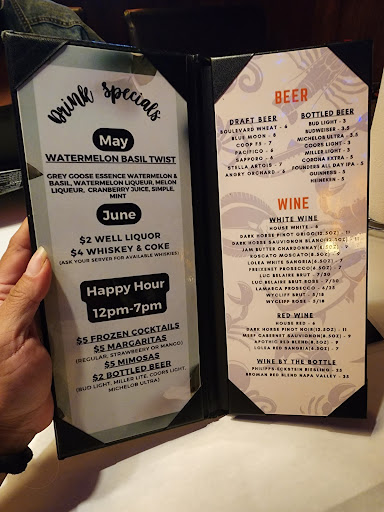 Drink specials
May
WATERMELON BASIL TWIST
GREY GOOSE ESSENCE WATERMELON &
BASIL, WATERMELON LIQUEUR, MELON
LIQUEUR, CRANBERRY JUICE, SIMPLE,
MINT
June
$2 WELL LIQUOR
$4 WHISKEY & COKE
(ASK YOUR SERVER FOR AVAILABLE WHISKIES)
Happy Hour
12pm-7pm
$5 FROZEN COCKTAILS
$5 MARGARITAS
(REGULAR, STRAWBERRY OR MANGO)
$5 MIMOSAS
$2 BOTTLED BEER
(BUD LIGHT, MILLER LITE, COORS LIGHT,
MICHELOB ULTRA)
BEER
DRAFT BEER
BOULEVARD WHEAT - 6
BLUE MOON - 6
COOP F5 - 7
PACIFICO - 6
SAPPORO - 6
STELLA ARTOIS - 7
ANGRY ORCHARD - 6
BOTTLED BEER
BUD LIGHT - 3
BUDWEISER - 3.5
MICHELOB ULTRA - 3.5
COORS LIGHT - 3
MILLER LIGHT - 3
CORONA EXTRA - 5
FOUNDERS ALL DAY IPA - 5
GUINNESS - 5
HEINEKEN - 5
WINE
WHITE WINE
HOUSE WHITE - 6
DARK HORSE PINOT GRIGIO - 11
DARK HORSE SAUVIGNON BLANC(12.5OZ) - 11
JAM BUTTER CHARDONNAY(8.5OZ) - 9
ROSCATO MOSCATO(8.5OZ) - 9
LOLEA WHITE SANGRIA(6.5OZ) - 7
FREIXENET PROSECCO(6.5OZ) - 7
LUC BELAIRE BRUT - 7/50
LUC BELAIRE BRUT ROSE - 7/50
LAMARCA PROSECCO - 6/25
WYCLIFF BRUT - 5/18
WYCLIFF ROSE - 5/18
RED WINE
HOUSE RED - 6
DARK HORSE PINOT NOIR(12.5OZ) - 11
MEEP CABERNET SAUVIGNON(8.5OZ) - 9
APOTHIC RED BLEND(8.5OZ) - 9
LOLEA RED SANGRIA(6.5OZ) - 7
WINE BY THE BOTTLE
PHILIPPS-ECKSTEIN RIESLING - 35
RED BLEND NAPA VALLEY - 35